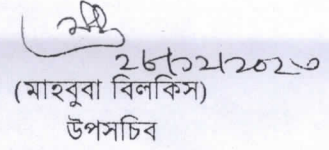 ২৮/১২/২০২৩
(মাহবুবা বিলকিস)
উপসচিব